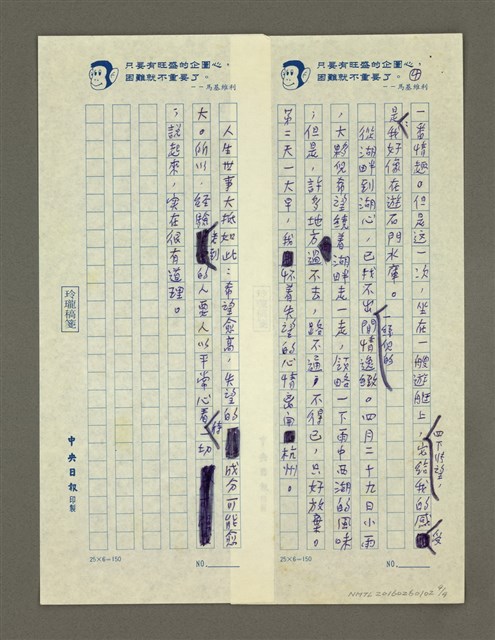 只要有旺盛的企圖心，
困難就不重要了。
——馬基維利
④
一番情趣。但是这一次，坐在一般遊艇上，四下張望，它給我的感受
是：我好像在遊石門水庫。
從湖畔到湖心，已找不出一絲絲的閒情逸緻。四月二十九日小雨
，大夥兒希望繞着湖畔走一走，領略一下雨中西湖的風味
，但是，許多地方過不去，路不通，不得已，只好放棄。
第二天一大早，我懷着失望的心情離開杭州。
25×6=150
NO.
NMTL20160260102 4/4
只要有旺盛的企圖心，
困難就不重要了。
——馬基維利
人生世事大抵如此：希望愈高，失望的成分可能愈
大。所以，經驗老到的人要人以平常心看待一切
，說起來，实在很有道理。
玲瓏稿箋
中央日報印製
25×6=150
NO.